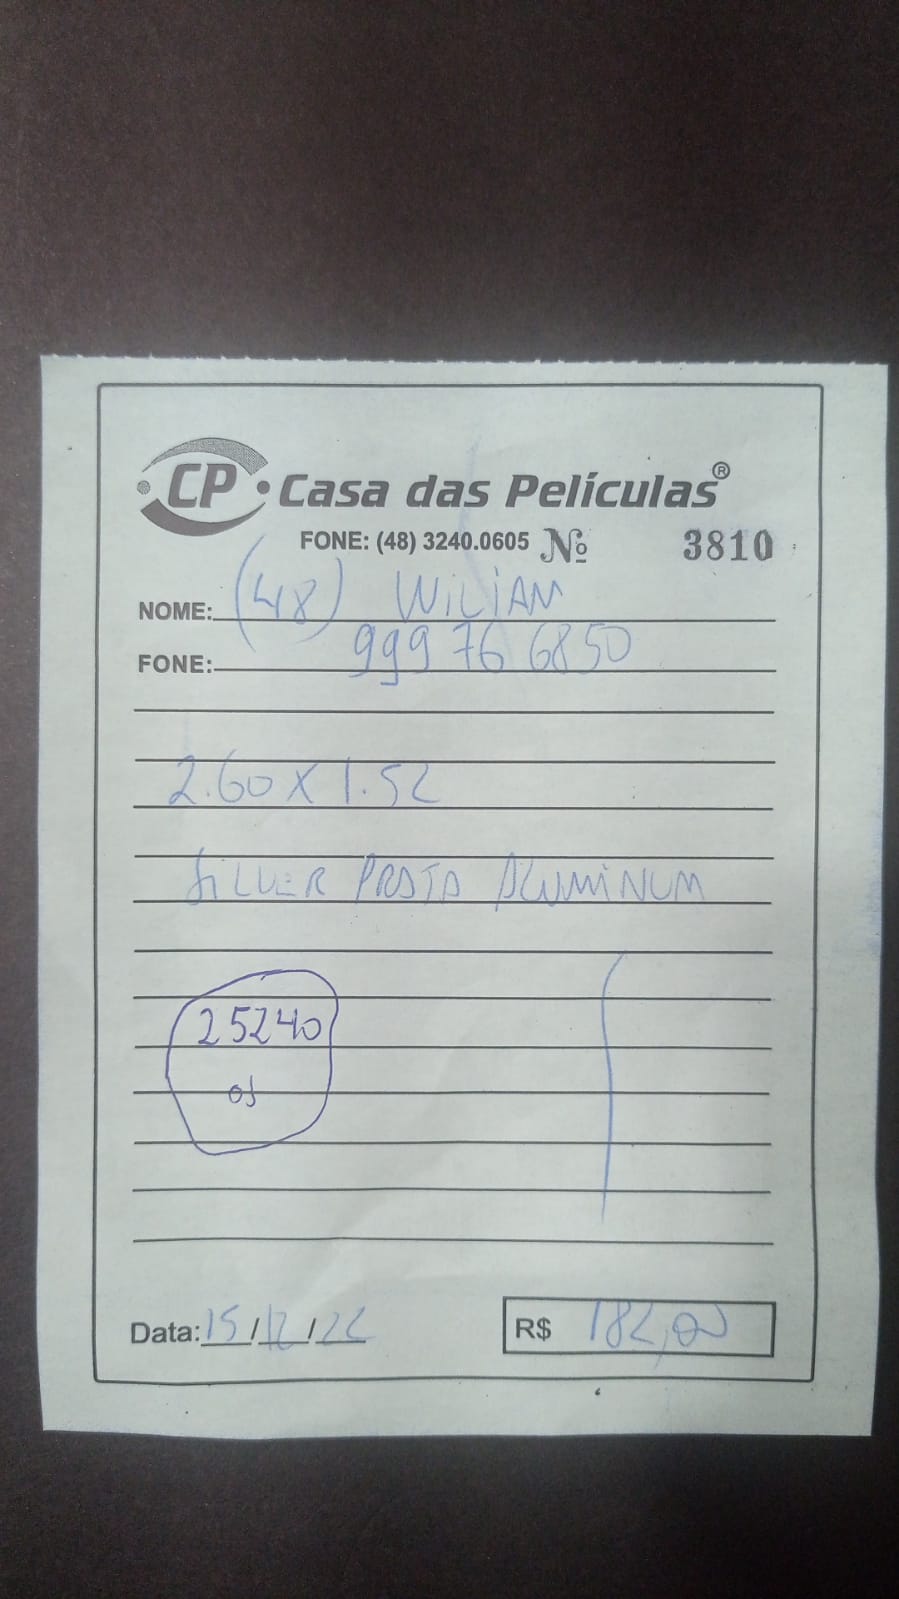 CP Casa das Películas®
FONE: (48) 3240.0605 Nº 3810
NOME: (48) WILIAN
FONE: 999 76 6850
2.60 X 1.52
SILVER PRATA ALUMINUM
25240
os
Data: 15/12/22 R$ 182,00